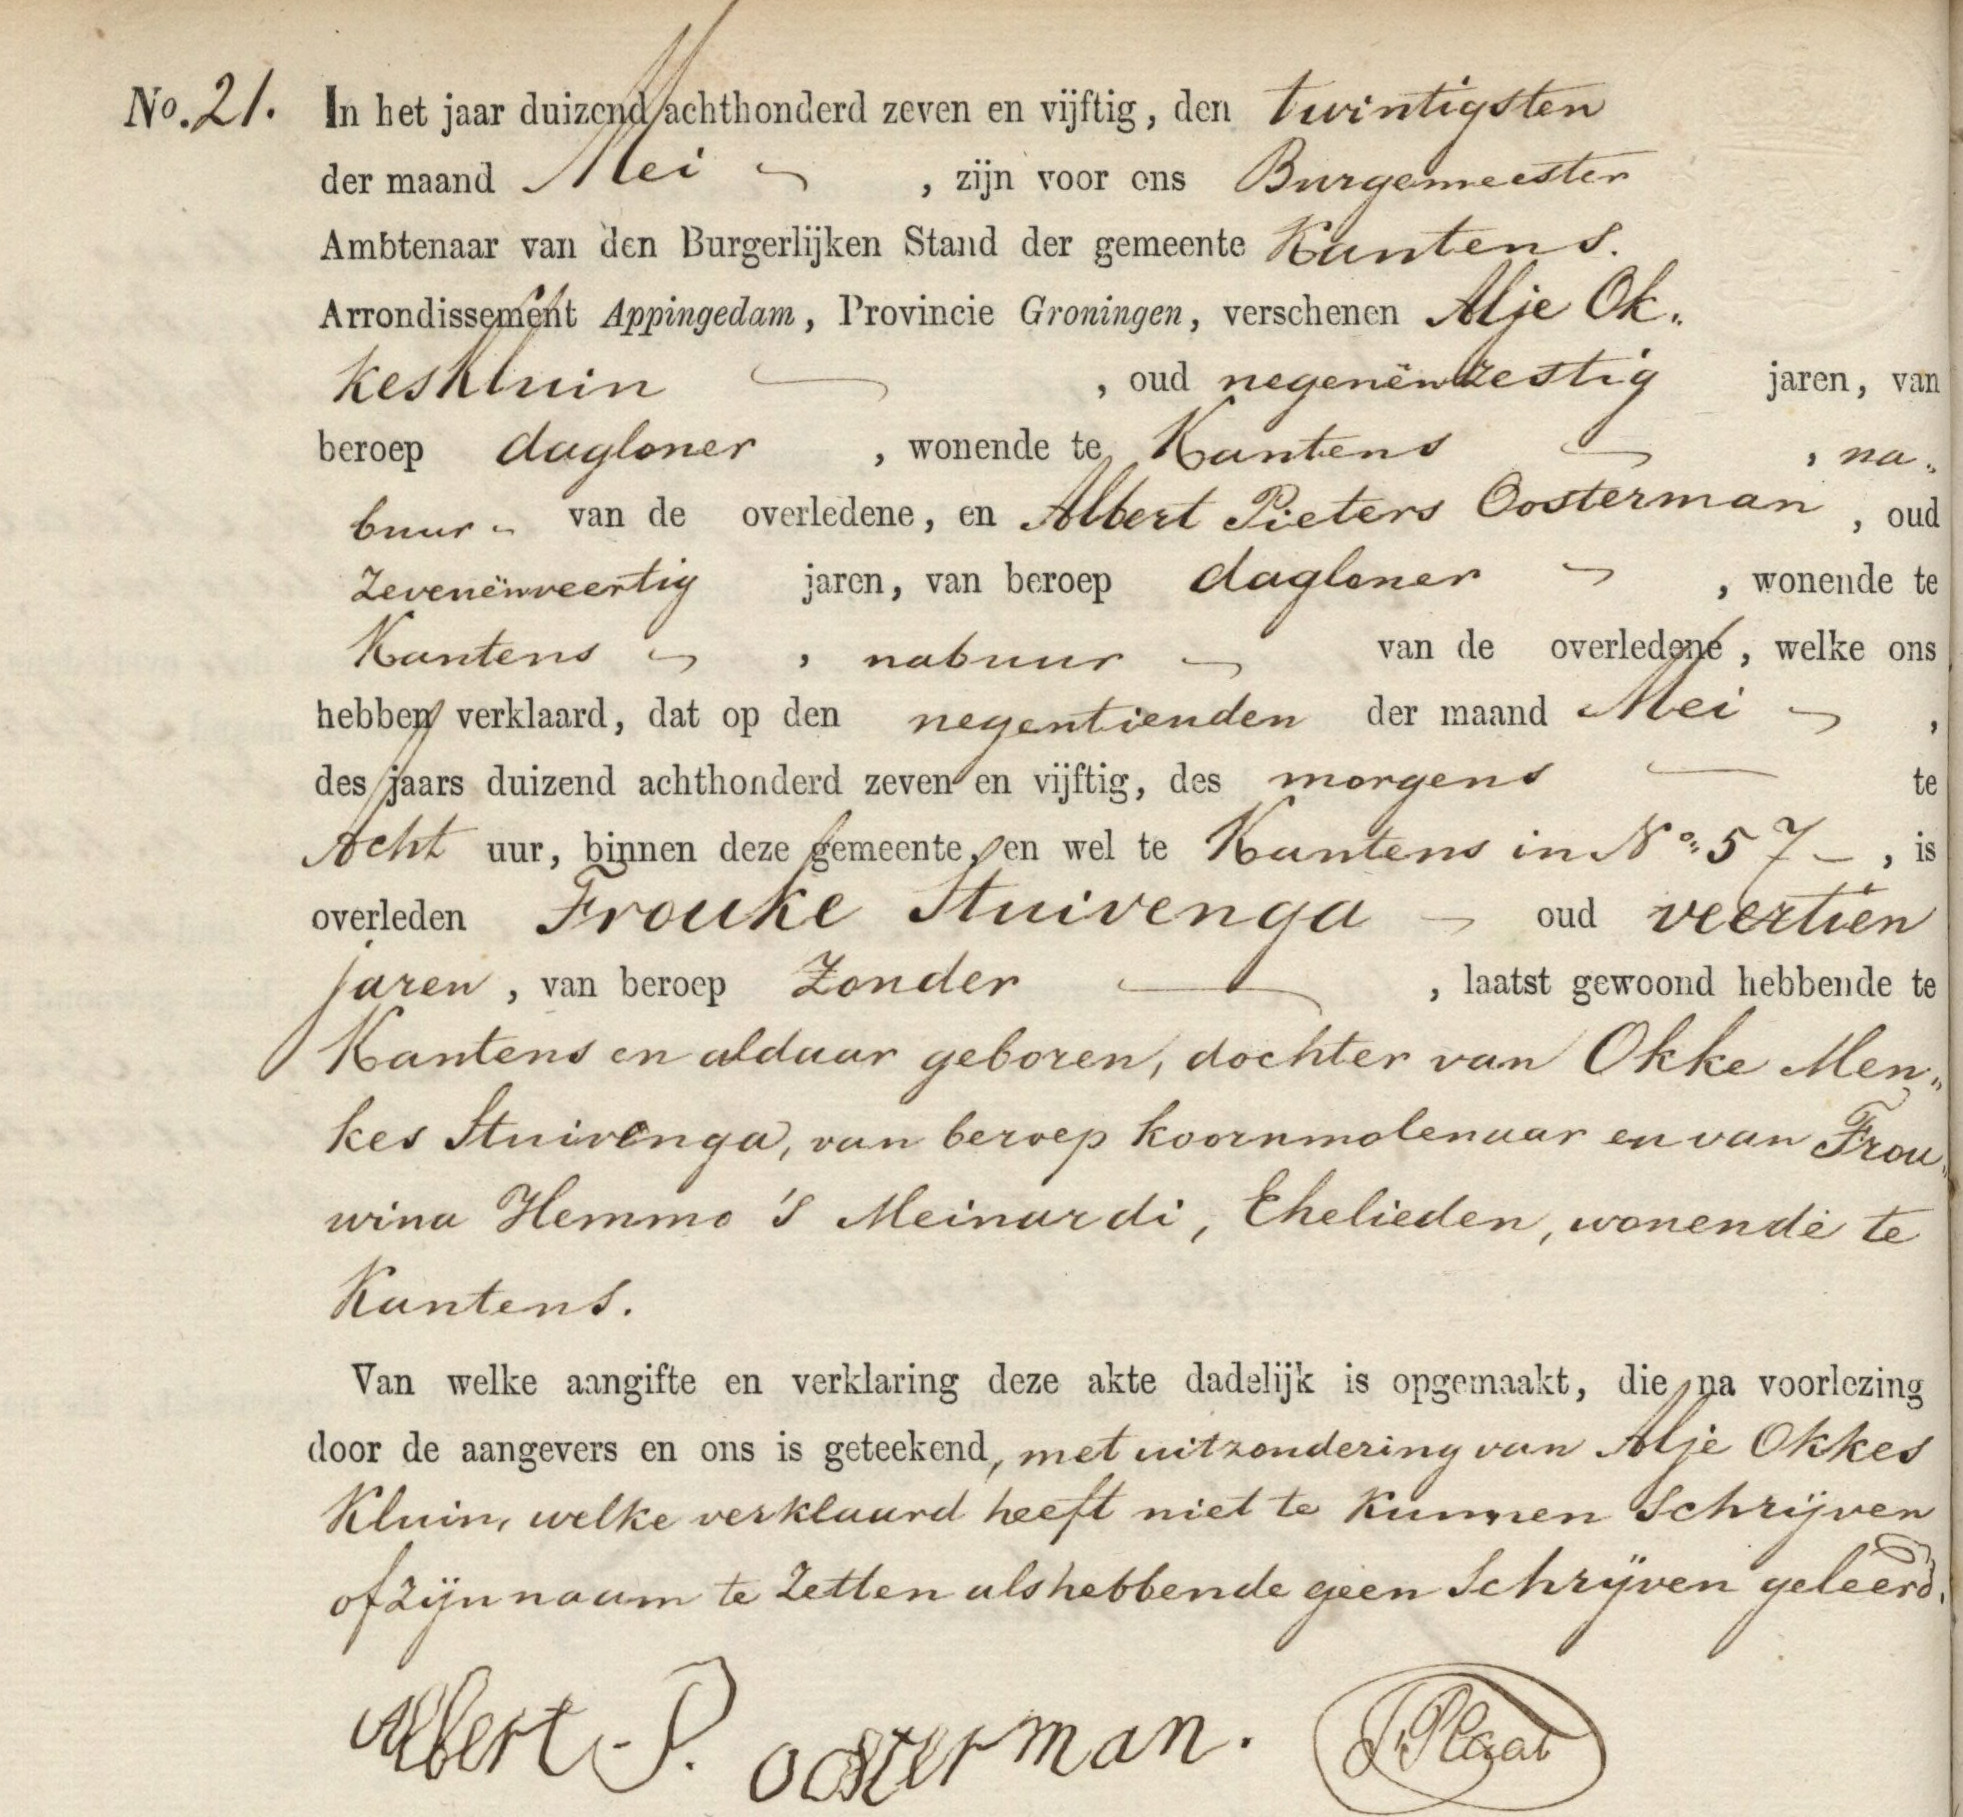 No. 21. In het jaar duizend achthonderd zeven en vijftig, den twintigsten
der maand Mei , zijn voor ons Burgemeester
Ambtenaar van den Burgerlijken Stand der gemeente Kantens.
Arrondissement Appingedam, Provincie Groningen, verschenen Alje Ok„
kes Kluin , oud negenënzestig jaren, van
beroep dagloner , wonende te Kantens , na„
buur van de overledene, en Albert Pieters Oosterman , oud
zevenënveertig jaren, van beroep dagloner , wonende te
Kantens , nabuur van de overledene, welke ons
hebben verklaard, dat op den negentienden der maand Mei ,
des jaars duizend achthonderd zeven en vijftig, des morgens te
Acht uur, binnen deze gemeente, en wel te Kantens in No. 57 – , is
overleden Frouke Stuivenga – oud veertien
jaren , van beroep Zonder , laatst gewoond hebbende te
Kantens en aldaar geboren, dochter van Okke Men„
kes Stuivenga, van beroep koornmolenaar en van Frou„
wina Hemmo's Meinardi, Ehelieden, wonende te
Kantens.
Van welke aangifte en verklaring deze akte dadelijk is opgemaakt, die na voorlezing
door de aangevers en ons is geteekend, met uitzondering van Alje Okkes
Kluin, welke verklaard heeft niet te kunnen Schrijven
of zijn naam te Zetten als hebbende geen Schrijven geleerd.
Albert P. oosterman. J Plaat